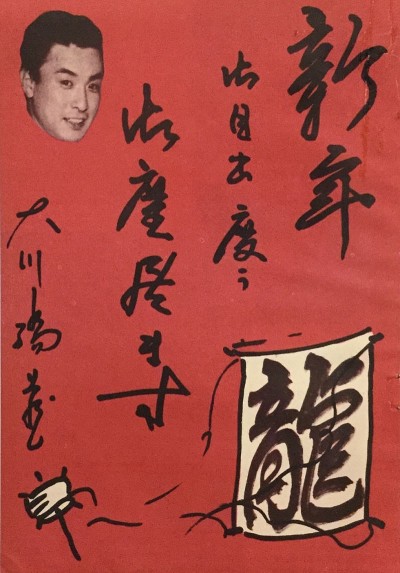 新年
御目出度う
御座居ます
大川橋蔵
龍